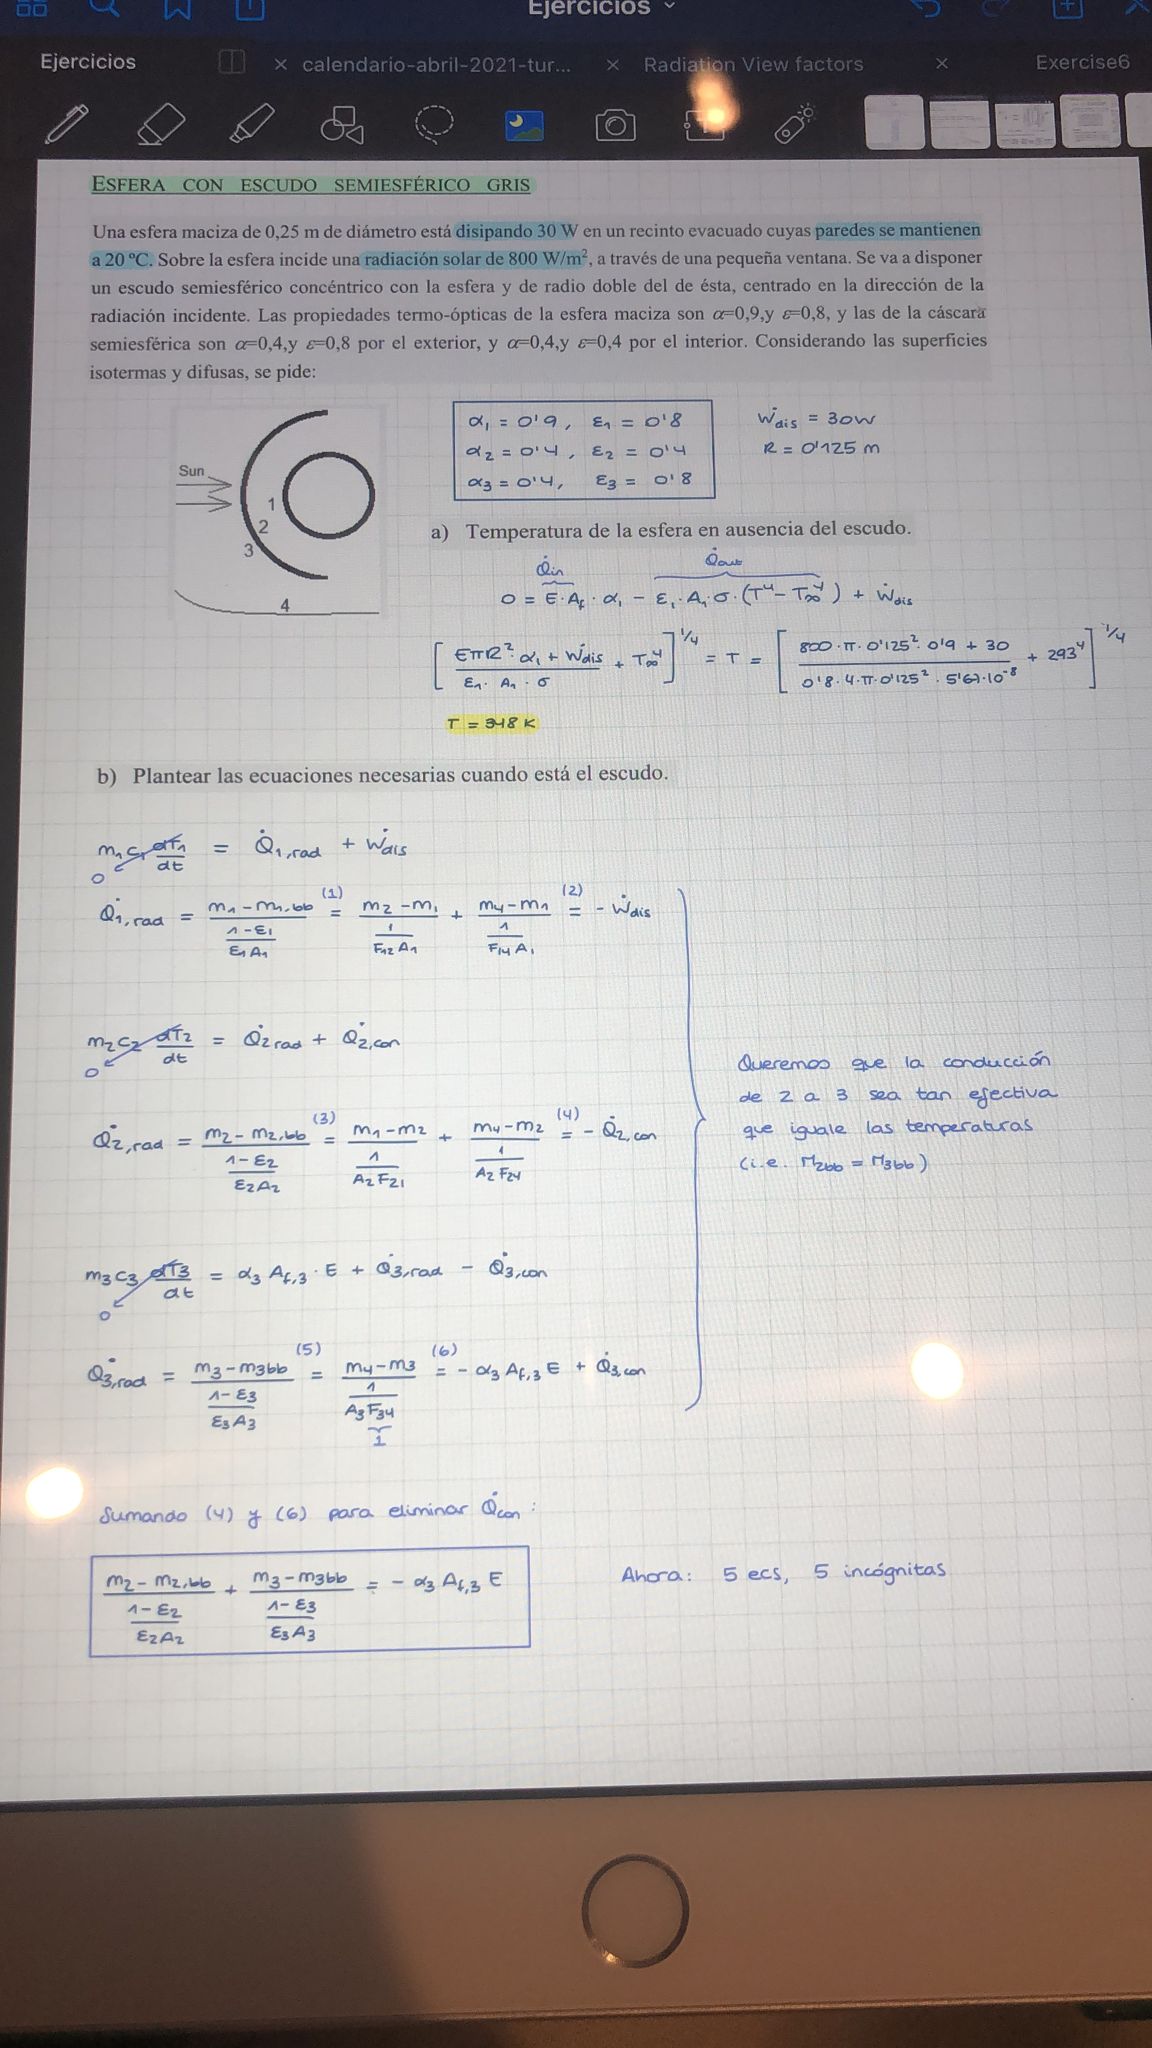 Ejercicios
Ejercicios × calendario-abril-2021-tur... × Radiation View factors × Exercise6
ESFERA CON ESCUDO SEMIESFÉRICO GRIS
Una esfera maciza de 0,25 m de diámetro está disipando 30 W en un recinto evacuado cuyas paredes se mantienen
a 20 ºC. Sobre la esfera incide una radiación solar de 800 W/m², a través de una pequeña ventana. Se va a disponer
un escudo semiesférico concéntrico con la esfera y de radio doble del de ésta, centrado en la dirección de la
radiación incidente. Las propiedades termo-ópticas de la esfera maciza son α=0,9,y ε=0,8, y las de la cáscara
semiesférica son α=0,4,y ε=0,8 por el exterior, y α=0,4,y ε=0,4 por el interior. Considerando las superficies
isotermas y difusas, se pide:
Sun
1
2
3
4
α₁ = 0'9, ε₁ = 0'8
α₂ = 0'4, ε₂ = 0'4
α₃ = 0'4, ε₃ = 0'8
Ẇdis = 30W
R = 0'125 m
a) Temperatura de la esfera en ausencia del escudo.
Q̇in Q̇out
0 = E·Af·α₁ − ε₁·A₁·σ·(T⁴−T∞⁴) + Ẇdis
[(EπR²·α₁ + Ẇdis)/(ε₁·A₁·σ) + T∞⁴]^1/4 = T = [(800·π·0'125²·0'9 + 30)/(0'8·4·π·0'125²·5'67·10⁻⁸) + 293⁴]^1/4
T = 348 K
b) Plantear las ecuaciones necesarias cuando está el escudo.
m₁c₁ dT₁/dt = Q̇1,rad + Ẇdis
0
Q̇1,rad = (m₁−m₁,bb)/((1−ε₁)/(ε₁A₁)) =(1) (m₂−m₁)/(1/(F₁₂A₁)) + (m₄−m₁)/(1/(F₁₄A₁)) =(2) −Ẇdis
m₂c₂ dT₂/dt = Q̇2rad + Q̇2,con
0
Q̇2,rad = (m₂−m₂,bb)/((1−ε₂)/(ε₂A₂)) =(3) (m₁−m₂)/(1/(A₂F₂₁)) + (m₄−m₂)/(1/(A₂F₂₄)) =(4) −Q̇2,con
Queremos que la conducción
de 2 a 3 sea tan efectiva
que iguale las temperaturas
(i.e. M2bb = M3bb)
m₃c₃ dT₃/dt = α₃ Af,3·E + Q̇3,rad − Q̇3,con
0
Q̇3,rad = (m₃−m₃bb)/((1−ε₃)/(ε₃A₃)) =(5) (m₄−m₃)/(1/(A₃F₃₄)) =(6) −α₃ Af,3 E + Q̇3,con
1
Sumando (4) y (6) para eliminar Q̇con:
(m₂−m₂,bb)/((1−ε₂)/(ε₂A₂)) + (m₃−m₃bb)/((1−ε₃)/(ε₃A₃)) = −α₃ Af,3 E
Ahora: 5 ecs, 5 incógnitas